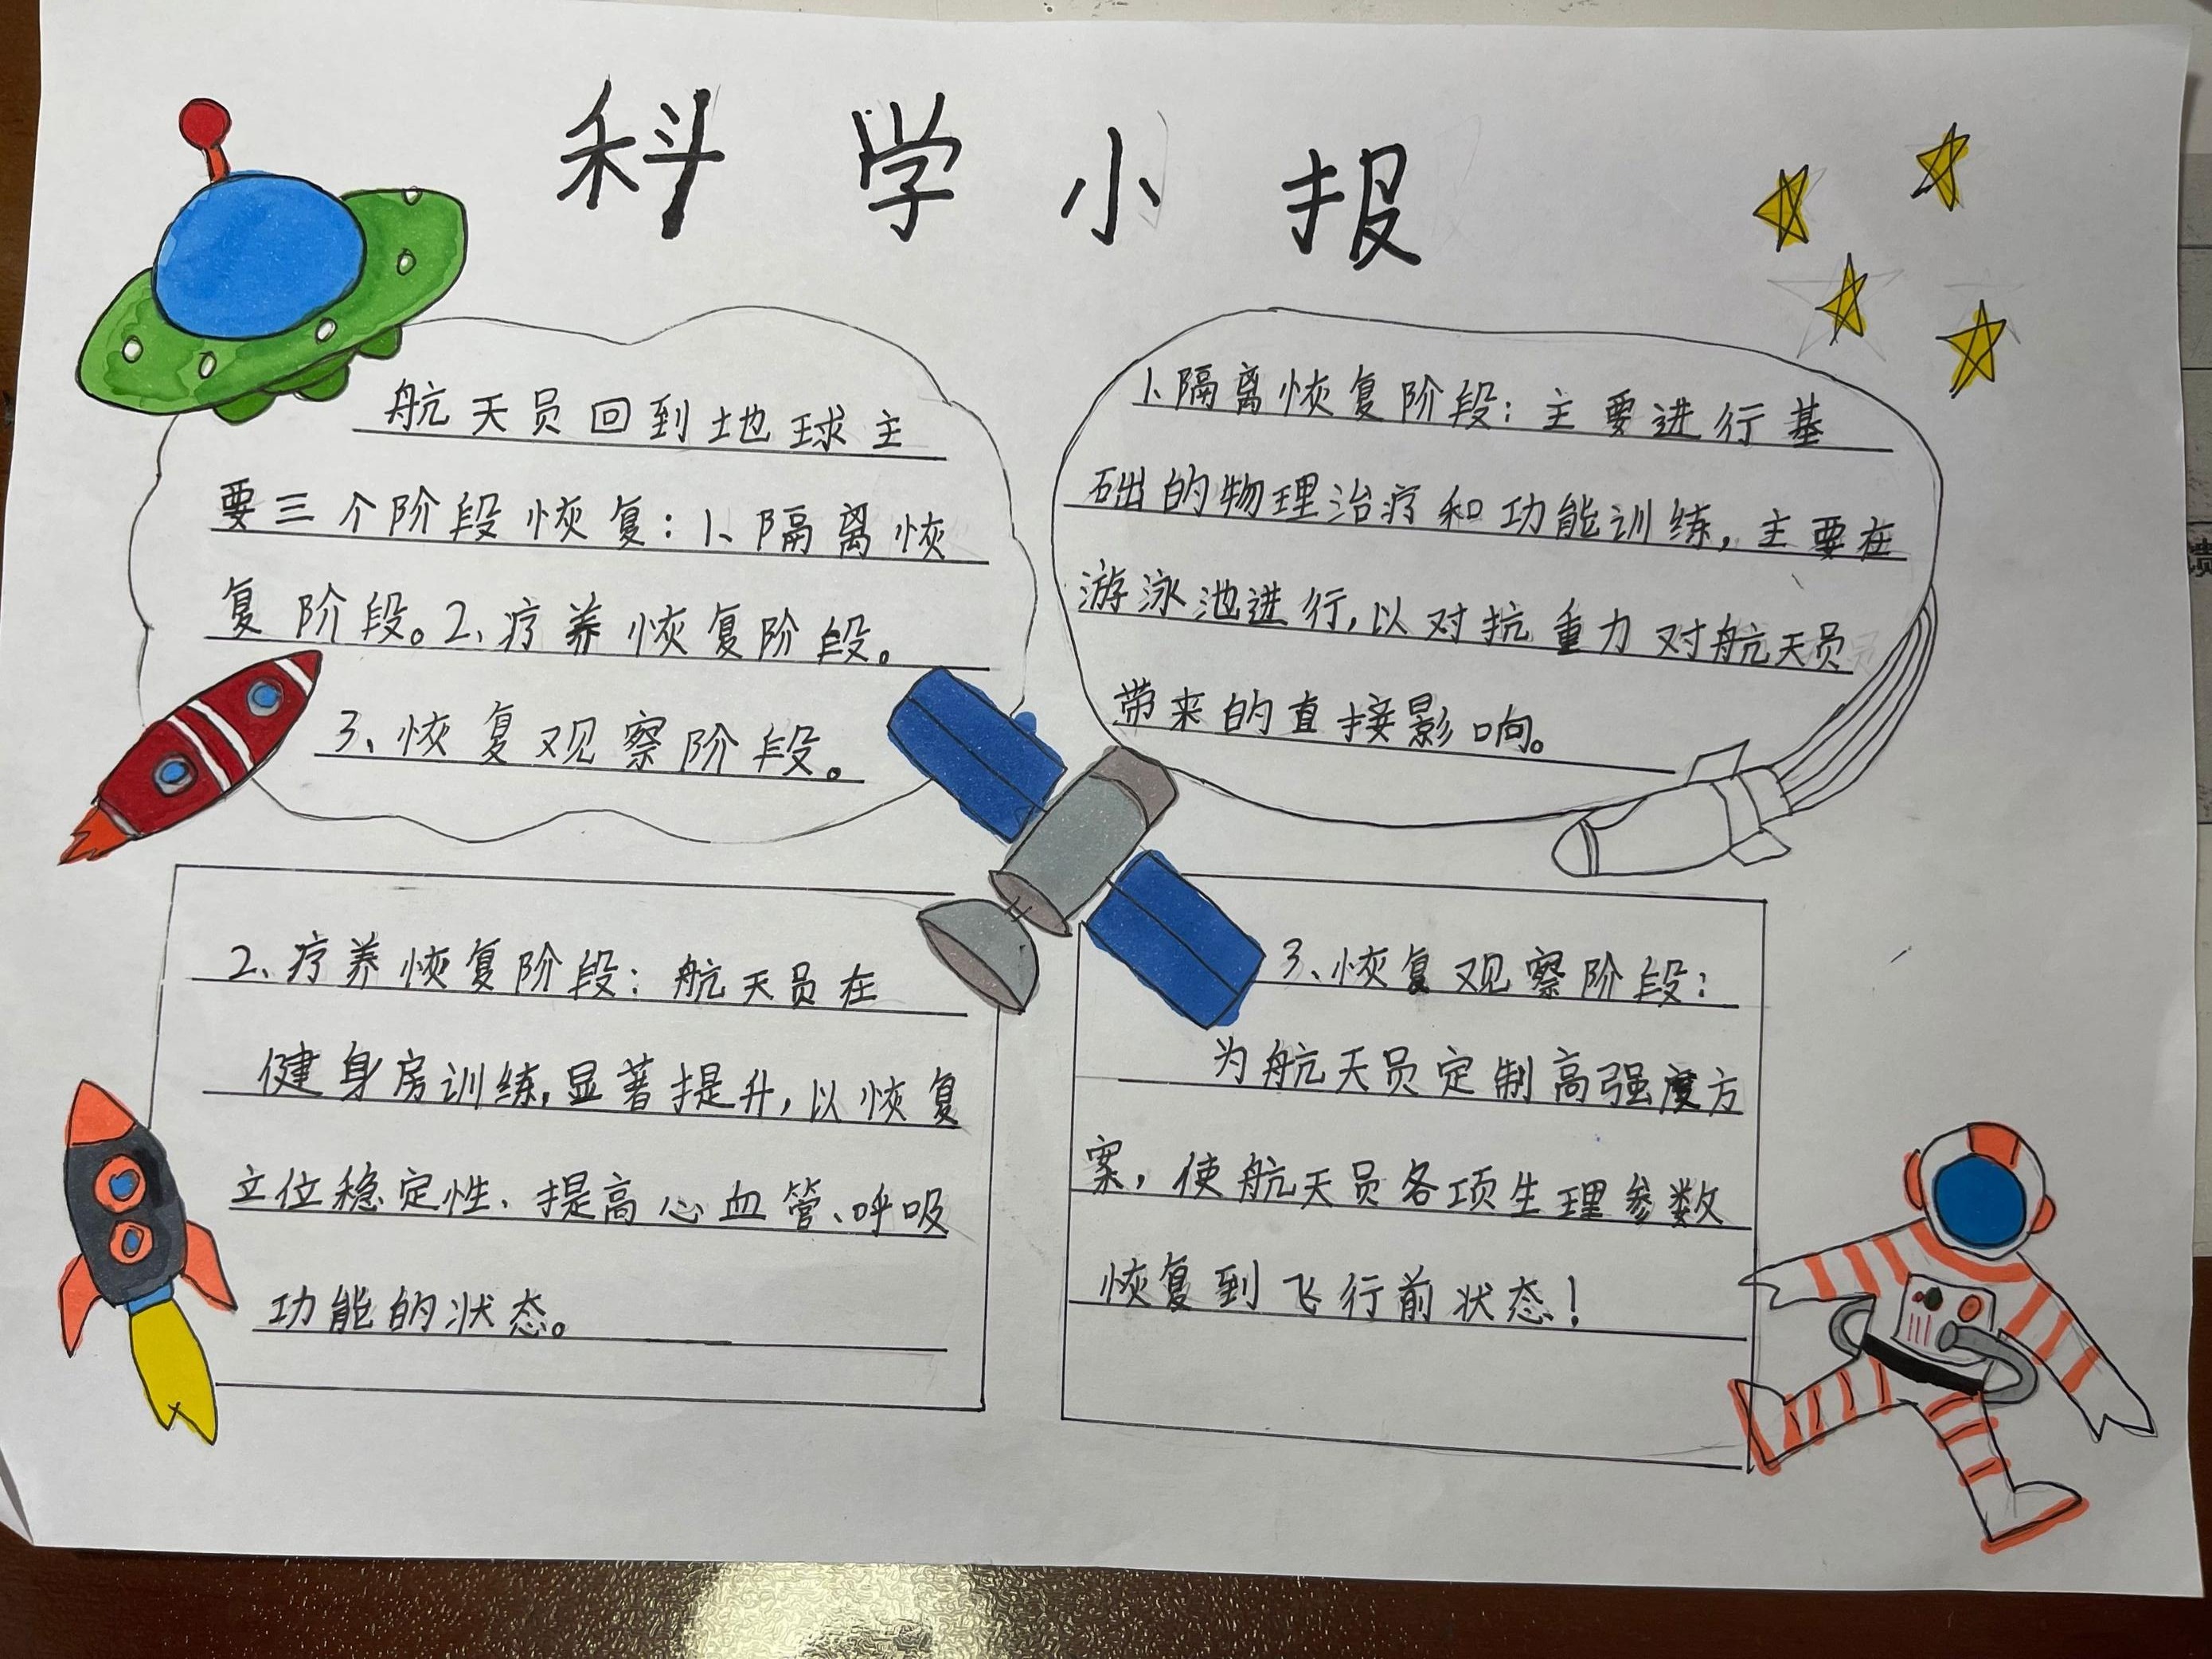 科学小报
航天员回到地球主
要三个阶段恢复：1、隔离恢
复阶段。2、疗养恢复阶段。
3、恢复观察阶段。
1、隔离恢复阶段：主要进行基
础的物理治疗和功能训练，主要在
游泳池进行，以对抗重力对航天员
带来的直接影响。
2、疗养恢复阶段：航天员在
健身房训练，显著提升，以恢复
立位稳定性、提高心血管、呼吸
功能的状态。
3、恢复观察阶段：
为航天员定制高强度方
案，使航天员各项生理参数
恢复到飞行前状态！